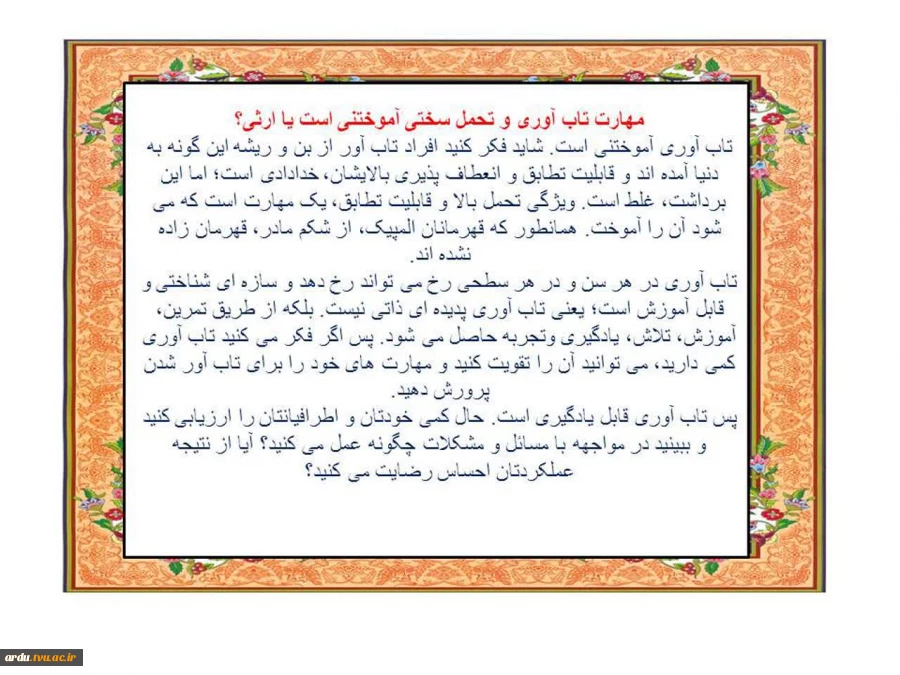 مهارت تاب آوری و تحمل سختی آموختنی است یا ارثی؟
تاب آوری آموختنی است. شاید فکر کنید افراد تاب آور از بن و ریشه این گونه به
دنیا آمده اند و قابلیت تطابق و انعطاف پذیری بالایشان، خدادادی است؛ اما این
برداشت، غلط است. ویژگی تحمل بالا و قابلیت تطابق، یک مهارت است که می
شود آن را آموخت. همانطور که قهرمانان المپیک، از شکم مادر، قهرمان زاده
نشده اند.
تاب آوری در هر سن و در هر سطحی رخ می تواند رخ دهد و سازه ای شناختی و
قابل آموزش است؛ یعنی تاب آوری پدیده ای ذاتی نیست. بلکه از طریق تمرین،
آموزش، تلاش، یادگیری وتجربه حاصل می شود. پس اگر فکر می کنید تاب آوری
کمی دارید، می توانید آن را تقویت کنید و مهارت های خود را برای تاب آور شدن
پرورش دهید.
پس تاب آوری قابل یادگیری است. حال کمی خودتان و اطرافیانتان را ارزیابی کنید
و ببینید در مواجهه با مسائل و مشکلات چگونه عمل می کنید؟ آیا از نتیجه
عملکردتان احساس رضایت می کنید؟
ardu.tvu.ac.ir